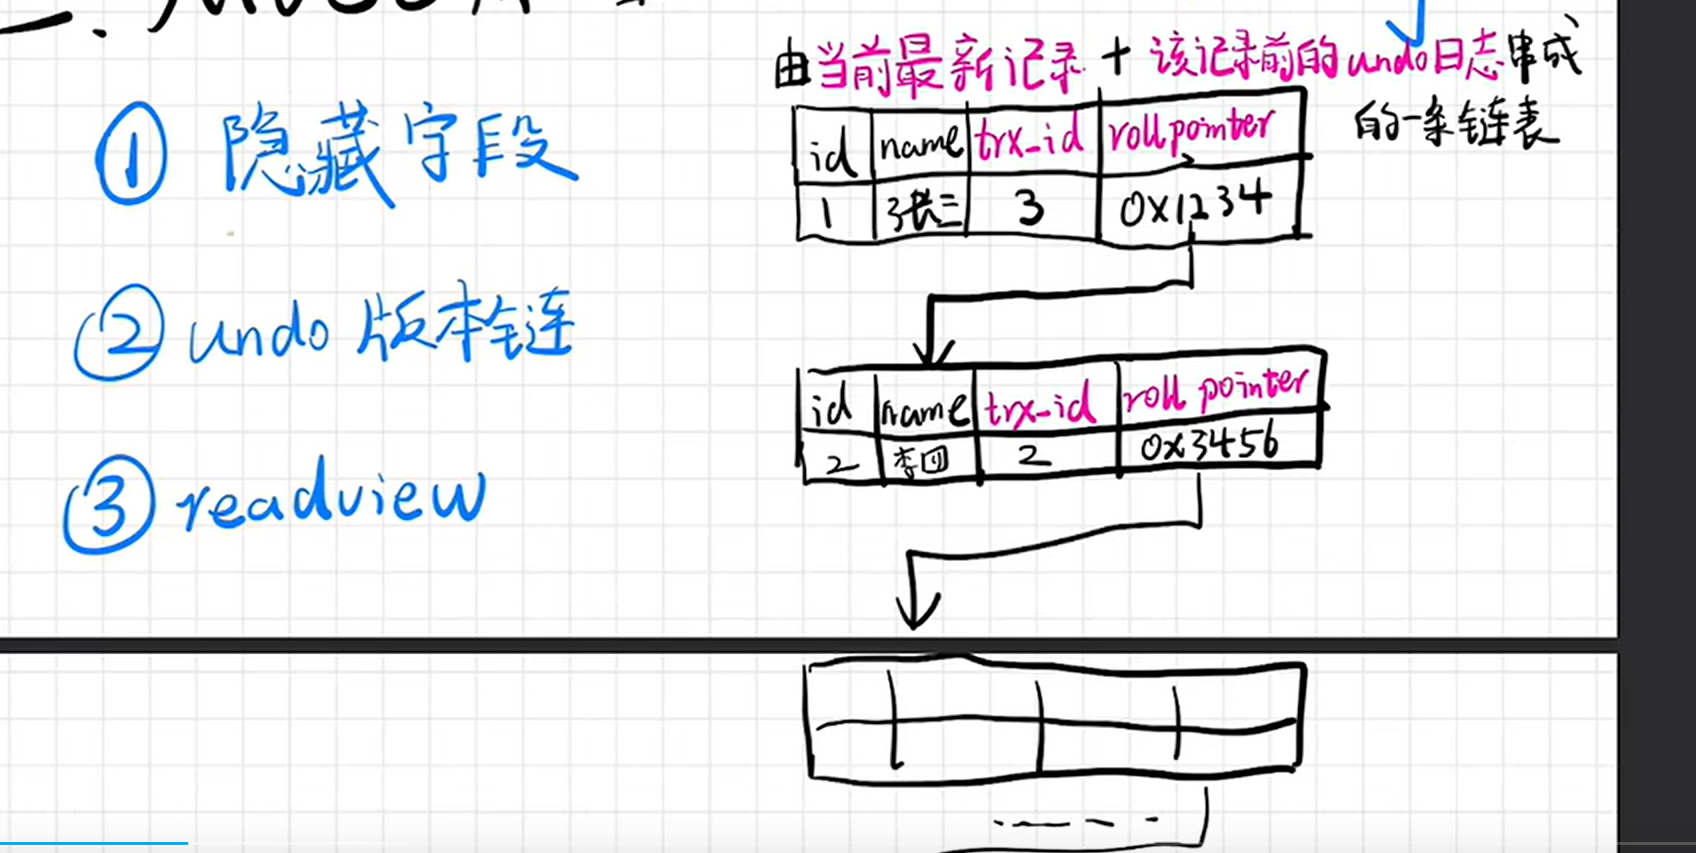 ① 隐藏字段
② undo 版本链
③ readview
由当前最新记录 + 该记录前的undo日志串成
的一条链表
id name trx_id roll pointer
1 张三 3 0x1234
id name trx_id roll pointer
2 李四 2 0x3456